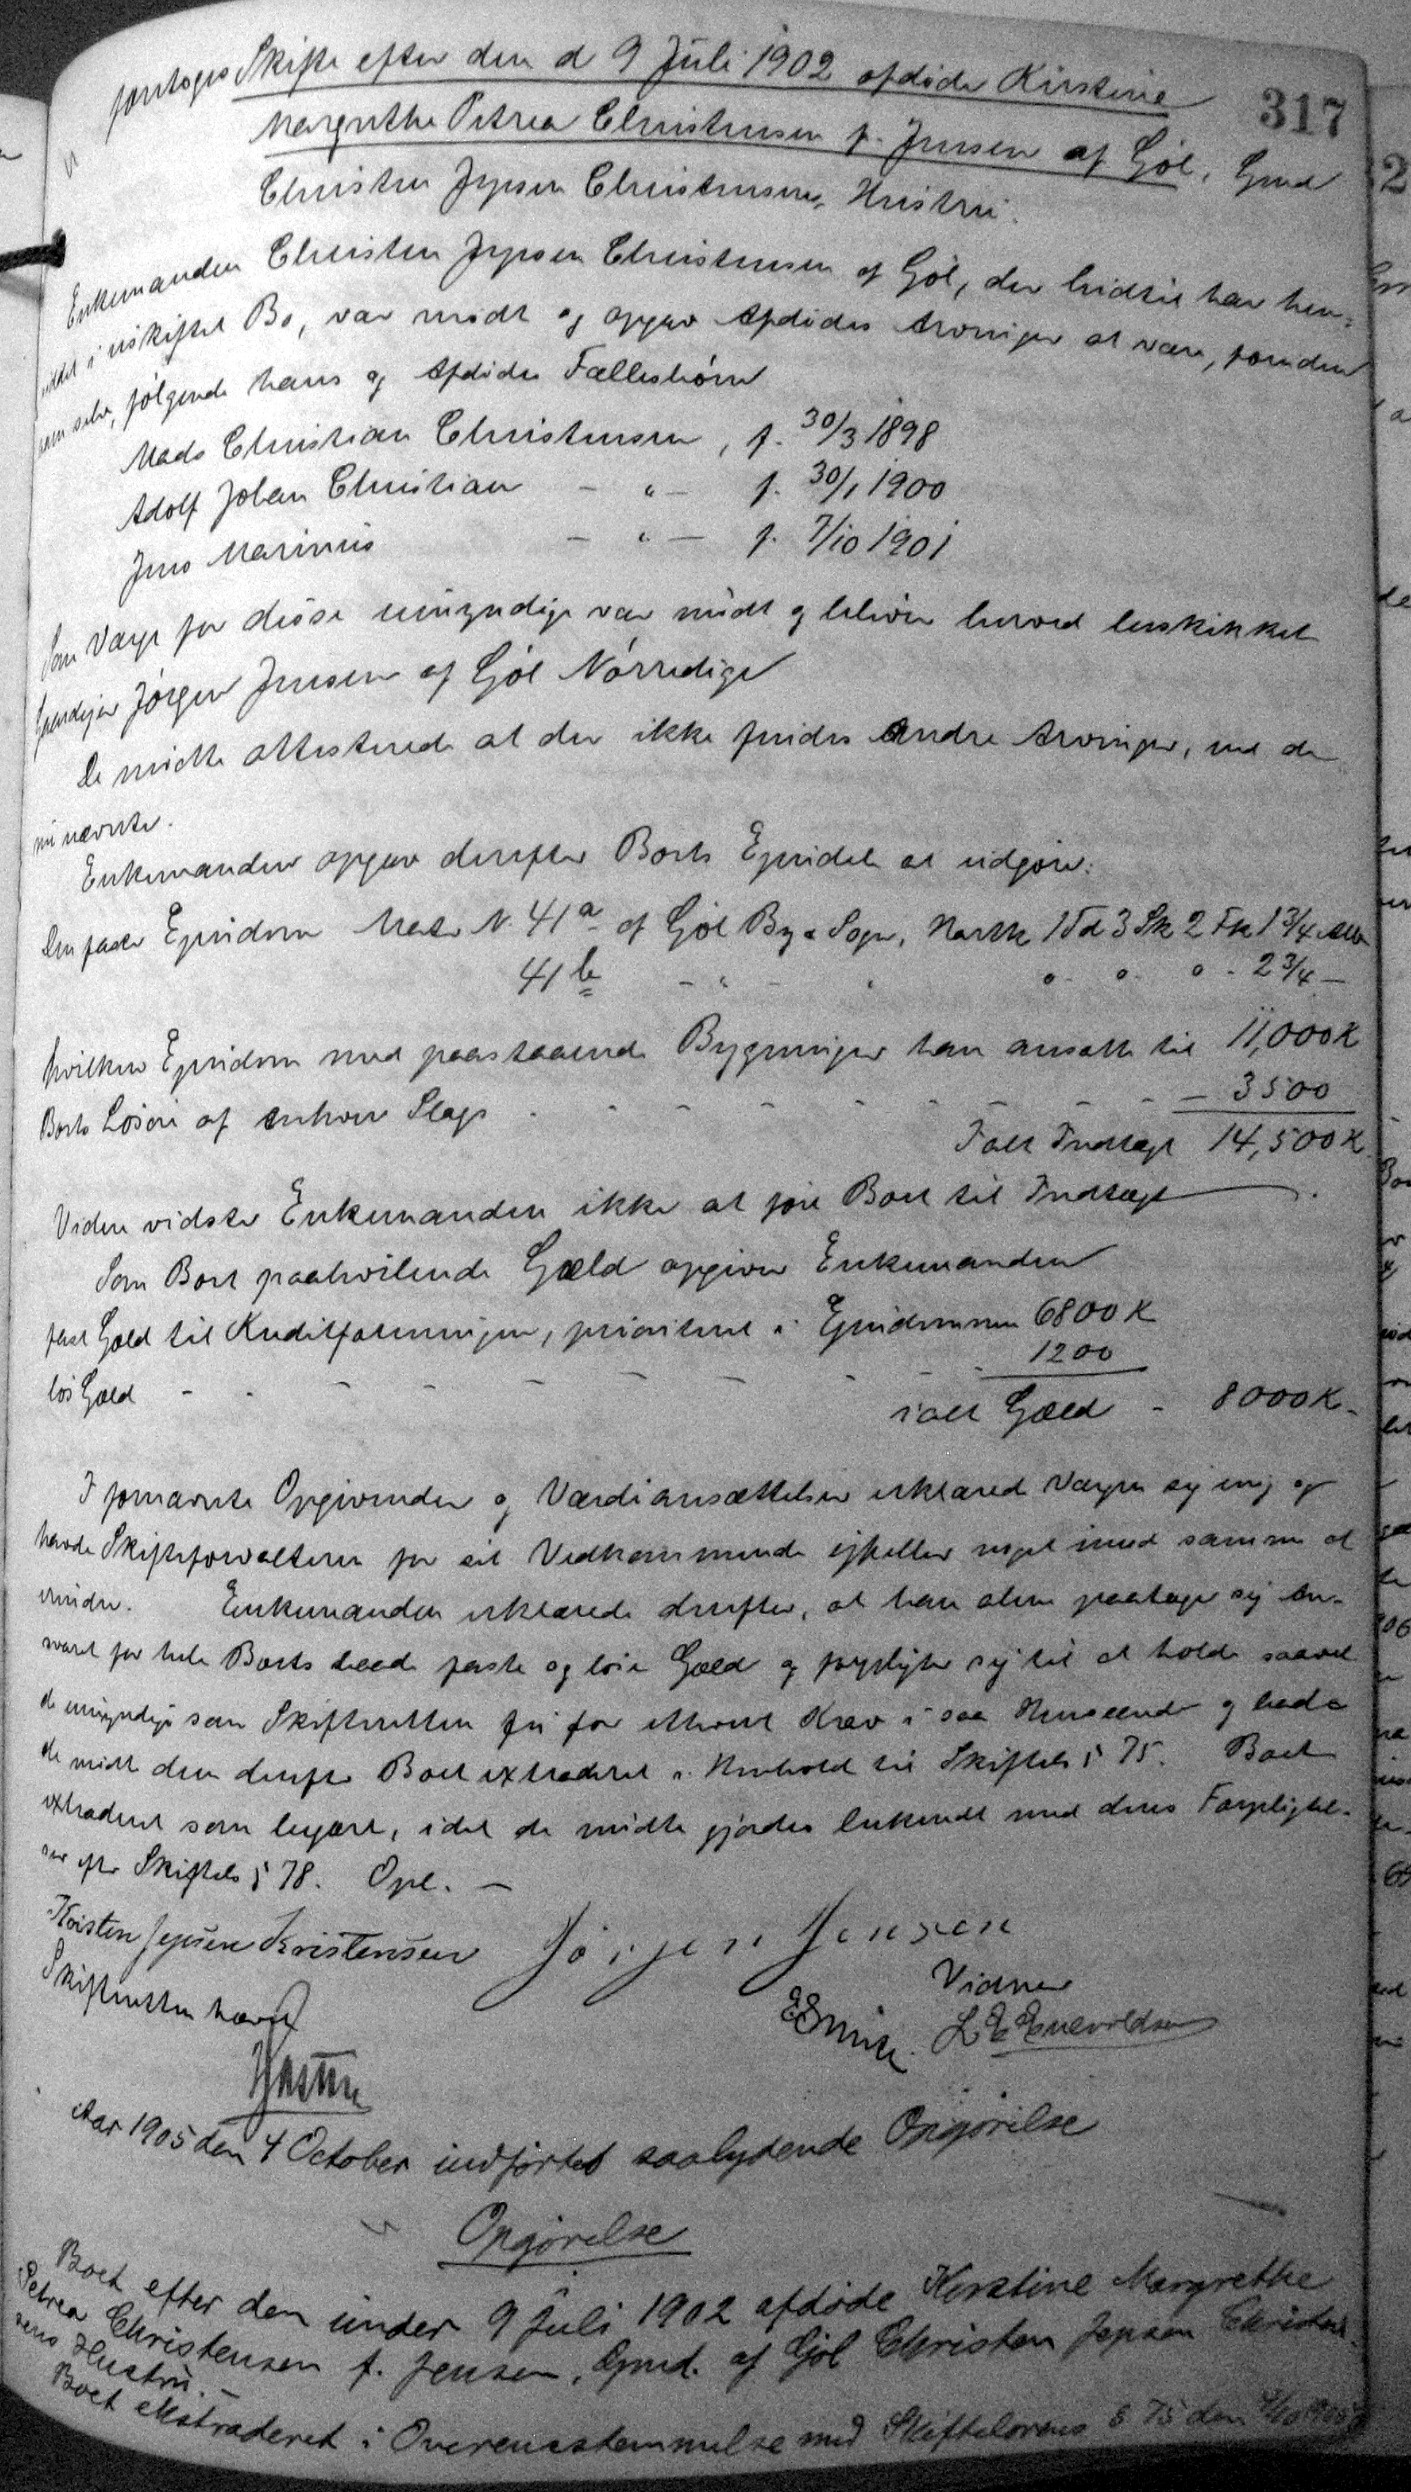 317
foretoges Skifte efter den d 9 Juli 1902 afdøde Kirstine
Margrethe Petrea Christensen f. Jensen af Gjøl, Gmd
Christen Jepsen Christensens Hustru.
Enkemanden Christen Jepsen Christensen af Gjøl, der hidtil har hen-
siddet i uskiftet Bo, var mødt og opgav Afdødes Arvinger at være, foruden
ham selv, følgende hans og Afdødes Fællesbørn
Mads Christian Christensen, f. 30/3 1898
Adolf Johan Christian - " - f. 30/1 1900
Jens Marinus - " - f. 7/10 1901
Som Værge for disse umyndige var mødt og bliver herved beskikket
Gaardejer Jørgen Jensen af Gjøl Nørredige
De mødte attesterede at der ikke findes andre Arvinger, end de
nu nævnte.
Enkemanden opgav derefter Boets Ejendele at udgøre:
Den faste Ejendom Matr N. 41a af Gjøl By & Sogn, Hartk 1 Td 3 Sk 2 Fk 1 3/4 Alb
41b - " - " 0 - 0 - 0 - 2 3/4 -
hvilken Ejendom med paastaaende Bygninger han ansatte til 11,000 K
Boets Løsøre af enhver Slags - - - - - - - - 3500
Ialt Indtægt 14,500 K
Videre vidste Enkemanden ikke at føre Boet til Indtægt.
Som Boet paahvilende Gæld opgiver Enkemanden
fast Gæld til Kreditforeningen, prioriteret i Ejendommen 6800 K
løs Gæld - - - - - - - - - 1200
ialt Gæld - 8000 K -
I fornævnte Opgivender og Værdiansættelser erklæred Værgen sig enig og
havde Skifteforvalteren for sit Vedkommende ejheller noget imod samme at
erindre. Enkemanden erklærede derefter, at han alene paatager sig An-
svaret for hele Boets baade faste og løse Gæld og forpligter sig til at holde saavel
de umyndige som Skifteretten fri for ethvert Krav i saa Henseende og bade
de mødte den derefter Boet extraderet i Henhold til Skiftels § 75. Boet
extraderet som begært, idet de mødte gjordes bekendt med deres Forpligtel-
ser efter Skiftels § 78. Opl. -
Kristen Jepsen Kristensen Jörgen Jensen
Skifteretten hævet
Vidner
L E Enevoldsen
Aar 1905 den 4 October indførtes saalydende Opgørelse
Opgørelse
Boet efter den under 9 Juli 1902 afdøde Kirstine Margrethe
Petrea Christensen f. Jensen, Gmd. af Gjøl Christen Jepsen Christen-
sens Hustru. -
Boet ekstraderet i Overensstemmelse med Skiftelovens § 75 den